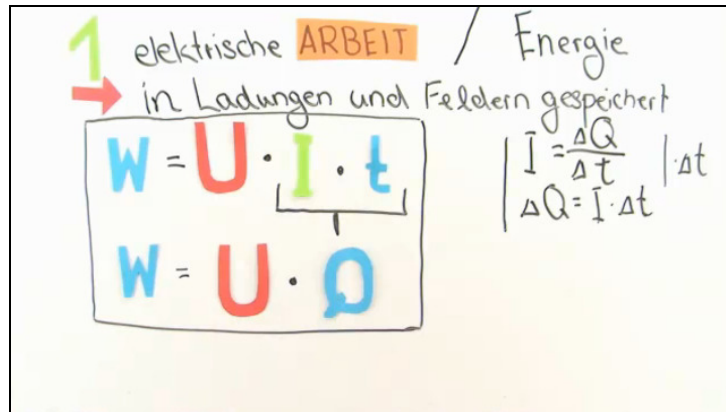 1 elektrische ARBEIT / Energie
→ in Ladungen und Feldern gespeichert
W = U · I · t
W = U · Q
| I = ΔQ/Δt | · Δt
| ΔQ = I · Δt